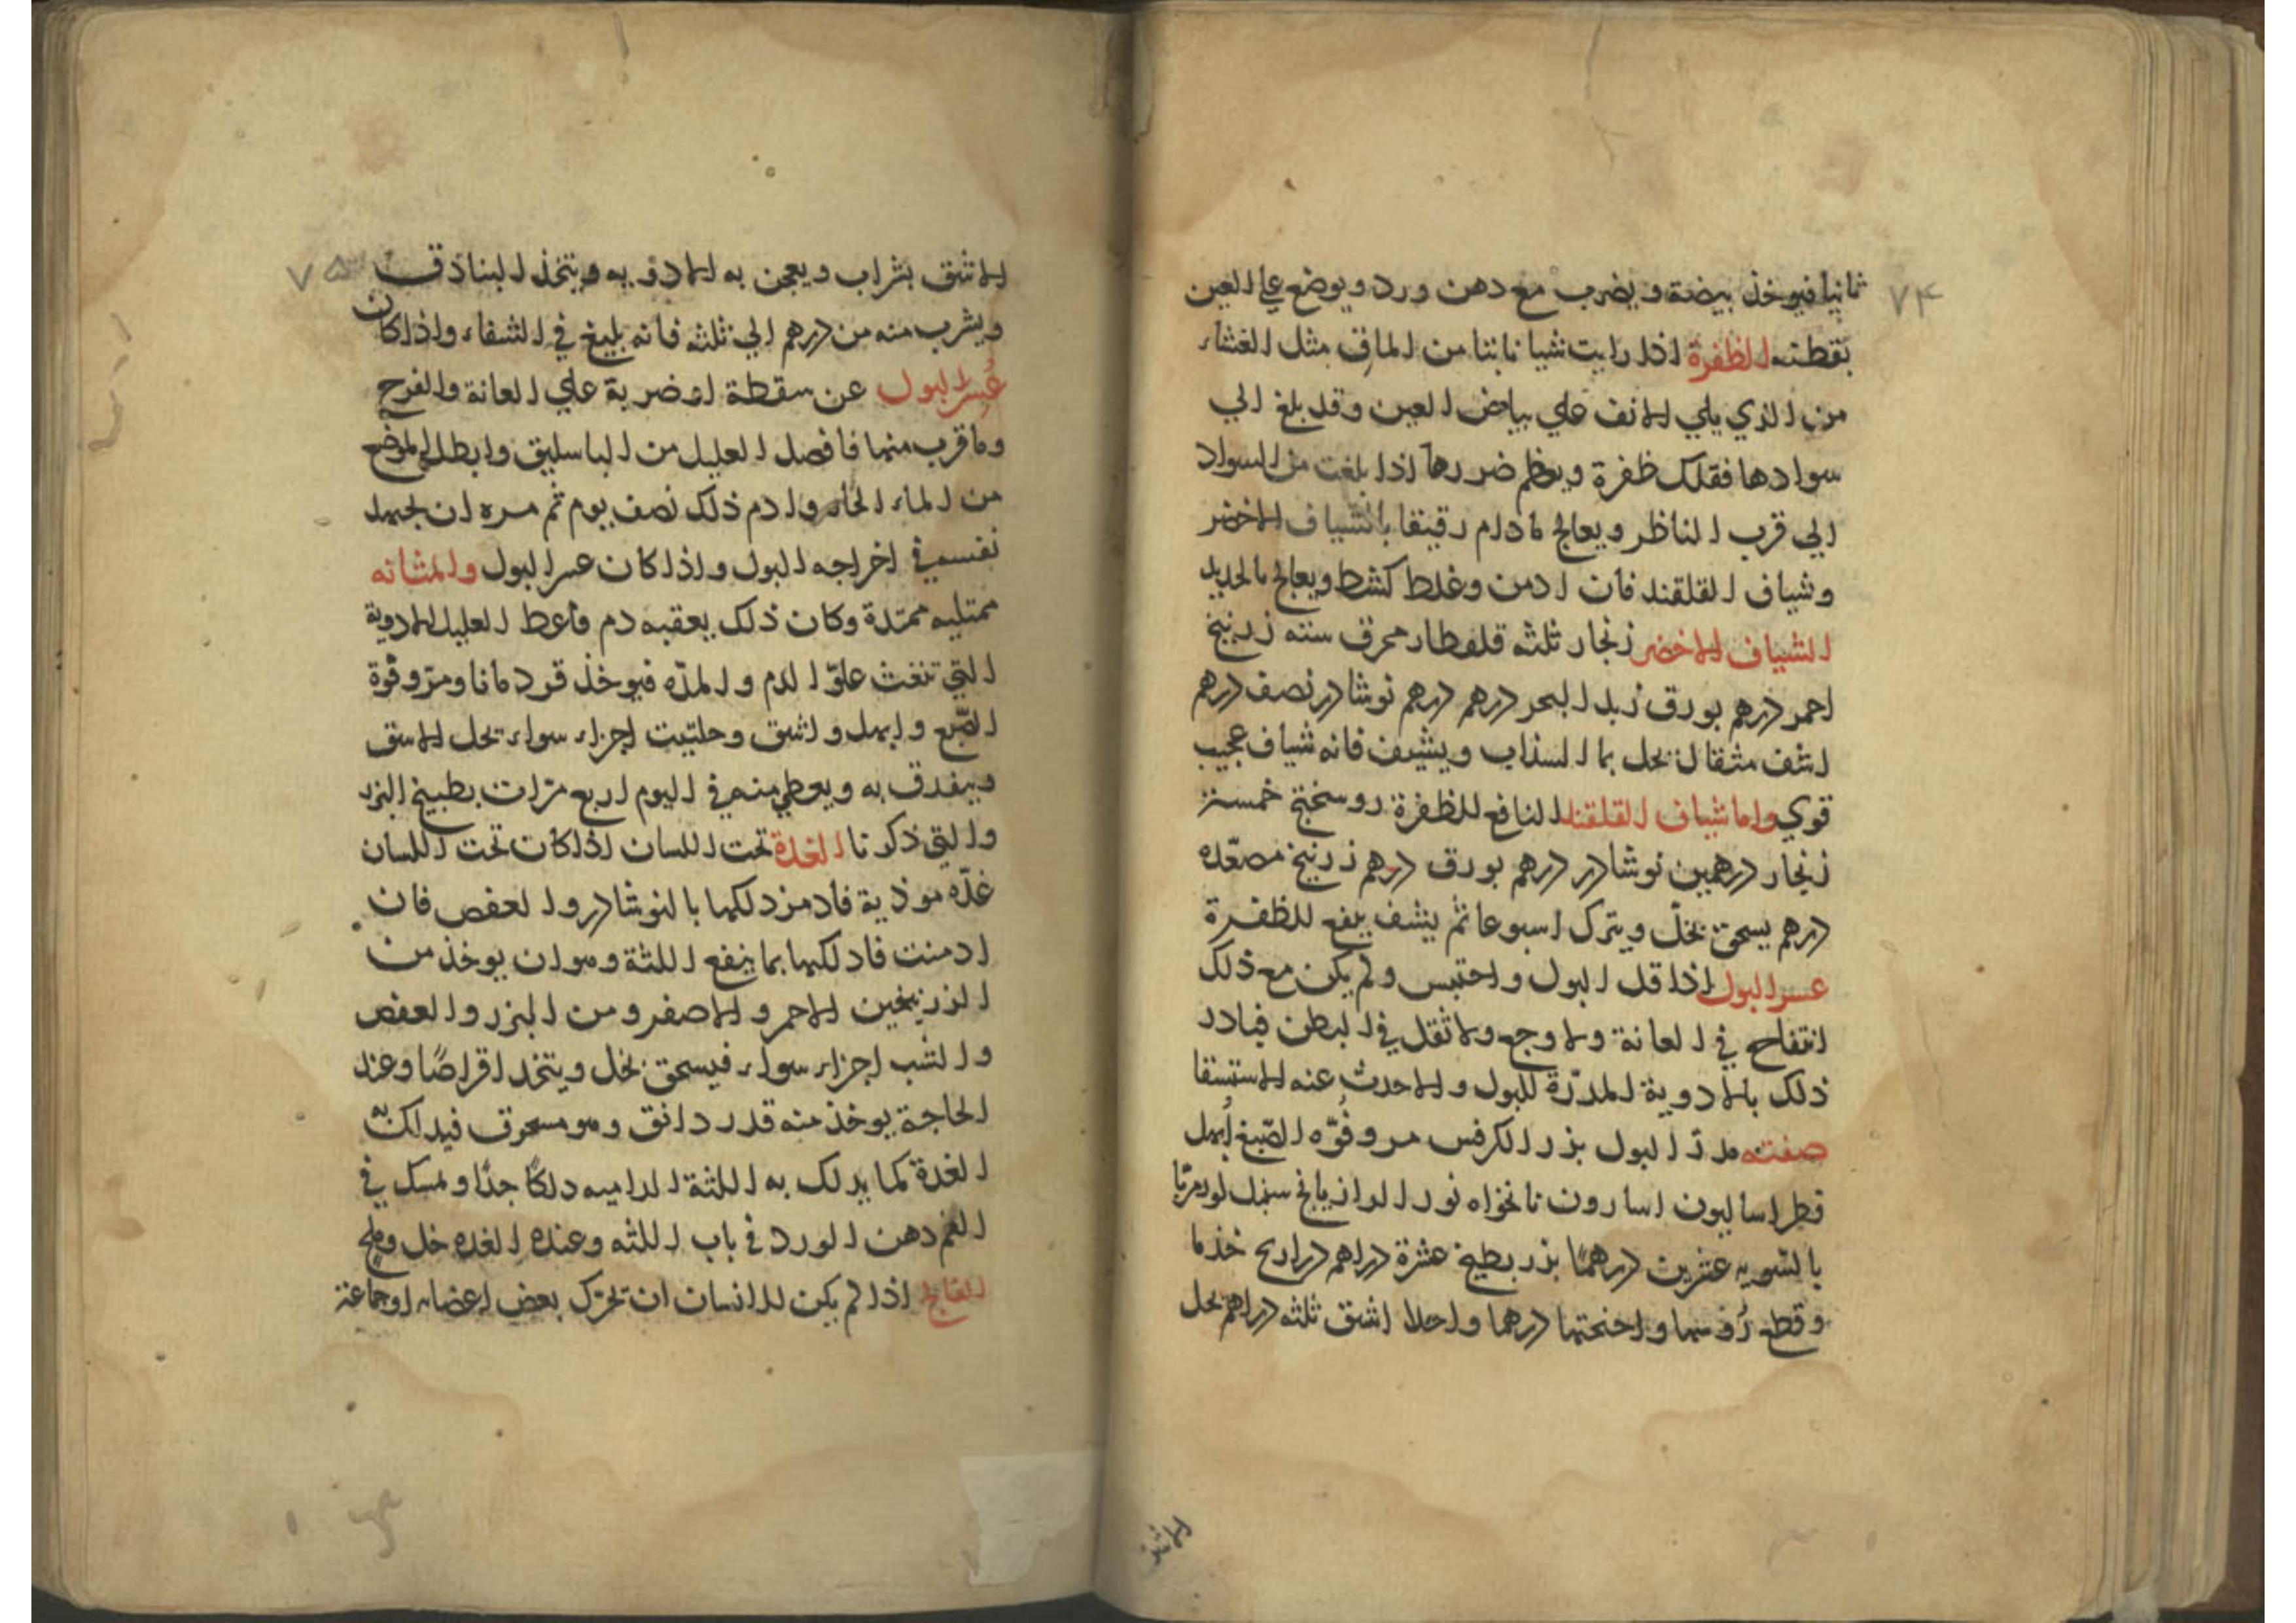 ٧٤
ثانيا فيوخذ بيضة ويضرب مع دهن ورد ويوضع علي العين
بقطنه الظفرة اذا رايت شيا نابتا من الماق مثل الغشاء
من الذي يلي الانف علي بياض العين وقد بلغ الي
سوادها فقلك ظفرة ويعظم ضررها اذا بلغت من السواد
الي قرب الناظر ويعالج مادام رقيقا بالشياف الاخضر
وشياف القلقند فان ادمن وغلط كشط ويعالج بالحديد
الشياف الاخضر زنجار ثلثه قلقطار محرق سته زرنيخ
احمر درهم بورق زبد البحر درهم درهم نوشادر نصف درهم
اشف مثقال يحل بما السذاب ويشيف فانه شياف عجيب
قوي واما شياف القلقند النافع للظفرة روسختج خمسة
زنجار درهمين نوشادر درهم بورق درهم زرنيخ مصعده
درهم يسحق بخل ويترك اسبوعا ثم يشف ينفع للظفرة
عسر البول اذا قل البول واحتبس ولم يكن مع ذلك
انتفاح في العانة ولا وجع ولا ثقل في البطن فبادر
ذلك بالادوية المدرة للبول والاحدث عنه الاستسقا
صفته مدر البول بذر الكرفس مر وفوّه الصّبغ أبهل
فطراساليون اسارون نانخواه نور الرازيانج سنبل
بالسويه عشرين درهمًا بزر بطيخ عشرة دراهم دراريح خذما
وقطع رؤسها واجنحتها درهما واحدا اشق ثلثه دراهم يحل
٧٥
الاشق بشراب ويعجن به الادويه ويتخذ البنادق
ويشرب منه من درهم الي ثلثه فانه بليغ في الشفاء واذا كان
عُسر البول عن سقطة او ضربة علي العانة والفرج
وما قرب منها فافصل العليل من الباسليق وابطل الموضع
من الماء الحار وادم ذلك نصف يوم ثم مره ان يجهد
نفسه في اخراجه البول واذا كان عسر البول والمثانه
ممتليه ممتدة وكان ذلك يعقبه دم فأعط العليل الادوية
التي تنغث علوّ الدم والمدّه فيوخذ قردمانا ومرّ وفوّة
الصّبع وابهل واشق وحلتيت اجزاء سواء يحل الاشق
ويبندق به ويعطي منه في اليوم اربع مرّات بطبيخ البزر
والتي ذكرنا الغدة تحت اللسان اذا كان تحت اللسان
غدّه موذية فادمن دلكها بالنوشادر والعفص فان
ادمنت فادلكها بما ينفع اللثة وهو ان يوخذ من
الزرنيخين الاحمر والاصفر ومن البزر والعفص
والشب اجزاء سواء فيسحق بخل ويتخذ اقراصًا وعند
الحاجة يوخذ منه قدر دانق وهو مسحوق فيدلك به
الغدة كما يدلك به اللثة الداميه دلكًا جدًا ويمسك في
الفم دهن الورد في باب اللثه وعنده الغده خل وملح
الفالج اذا لم يكن للانسان ان تحرك بعض اعضاء اوجاعة